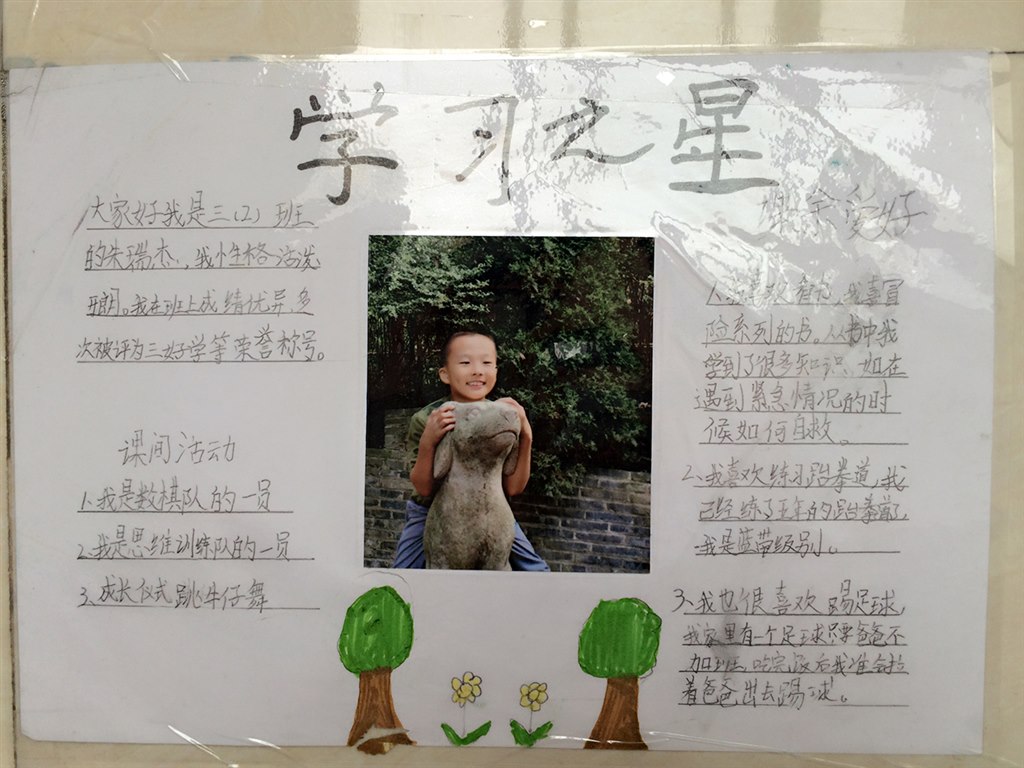 学习之星
大家好我是三(2)班
的朱瑞杰,我性格活泼
开朗。我在班上成绩优异,多
次被评为三好学等荣誉称号。
课间活动
1、我是数棋队的一员
2、我是思维训练队的一员
3、成长仪式跳牛仔舞
余爱好
1、我喜欢看书,我喜冒
险系列的书。从书中我
学到了很多知识、如在
遇到紧急情况的时
候如何自救。
2、我喜欢练习跆拳道,我
已经练了五年的跆拳道了,
我是蓝带级别。
3、我也很喜欢踢足球,
我家里有一个足球只要爸爸不
加班,吃完饭后我准会拉
着爸爸出去踢球。